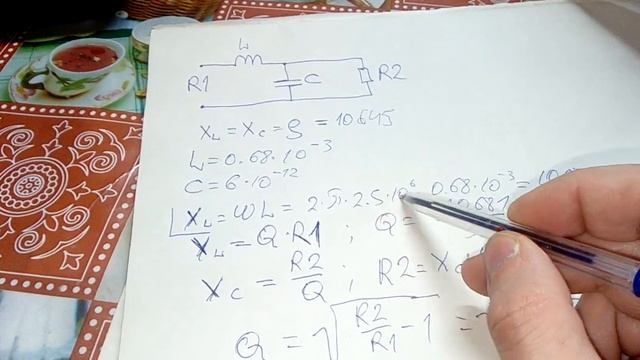 L
R1 C R2
X_L = X_C = ρ = 10.645
L = 0.68·10^-3
C = 6·10^-12
X_L = ωL = 2·π·2.5·10^6 0.68·10^-3 =
X_L = Q·R1 ; Q =
X_C = R2/Q ; R2 = X
Q = √(R2/R1 - 1) =